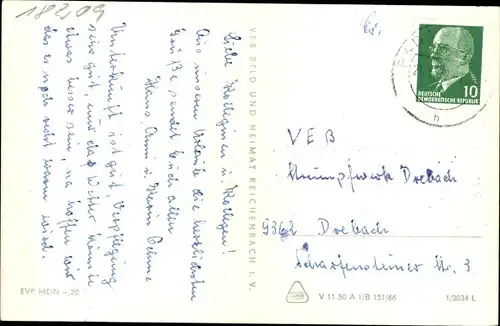 18209
Liebe Kolleginnen u. Kollegen!
Aus unserem Urlaub die herzlichsten
Grüße sendet Euch allen
Hans, Anni u. Karin
Unterkunft ist gut, Verpflegung
sehr gut nur das Wetter könnte
etwas besser sein, na hoffen wir
das es noch recht warm wird.
EVP MDN –,20
VEB BILD UND HEIMAT REICHENBACH I. V.
10
DEUTSCHE
DEMOKRATISCHE REPUBLIK
h
VEB
Strumpfwerk Drebach
9362 Drebach
Scharfensteiner Str. 3
V 11 50 A 1/B 151/66
1/3034 L